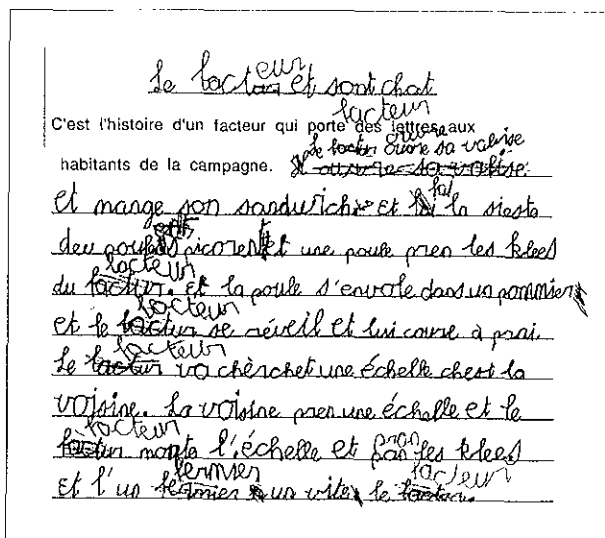 Le facteur et sont chat
C'est l'histoire d'un facteur qui porte des lettres aux
facteur
habitants de la campagne. Le facteur ouvre sa valise
et mange son sandwich et fai la sieste
deu poules picorent et une poule pren les klees
du facteur. et la poule s'envole dans un pommier
et le facteur se réveil et lui coure a prai.
Le facteur va chèrchet une échelle chest la
voisine. La voisine pren une échelle et le
facteur monte l'échelle et pran les klees
et l'un fermier un vite le facteur.